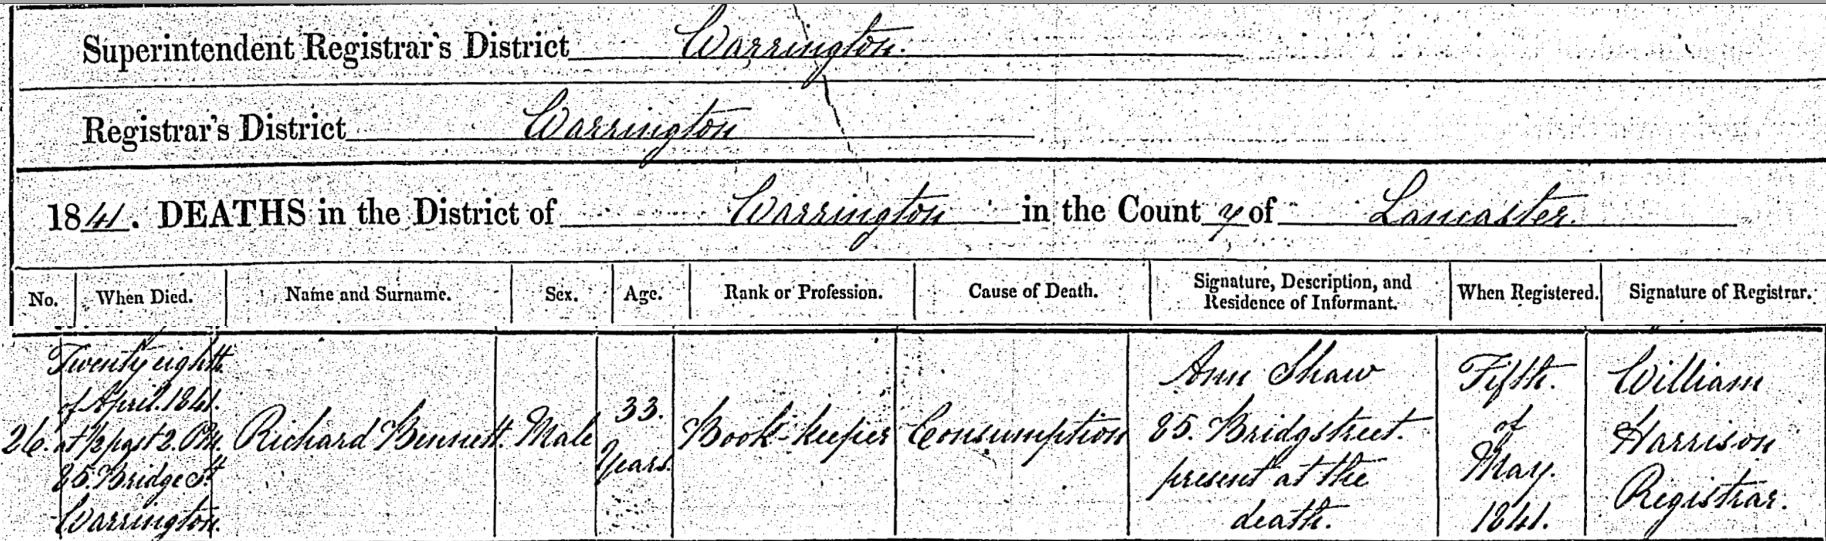 Superintendent Registrar's District Warrington.
Registrar's District Warrington
1841. DEATHS in the District of Warrington in the County of Lancaster.
No. When Died. Name and Surname. Sex. Age. Rank or Profession. Cause of Death. Signature, Description, and Residence of Informant. When Registered. Signature of Registrar.
26.
Twenty eighth
of April. 1841.
at ½ past 2. P.M.
85. Bridge St
Warrington.
Richard Bennett.
Male
33.
Years.
Book-keeper
Consumption
Ann Shaw
85. Bridgstreet.
present at the
death.
Fifth.
of
May.
1841.
William
Harrison
Registrar.